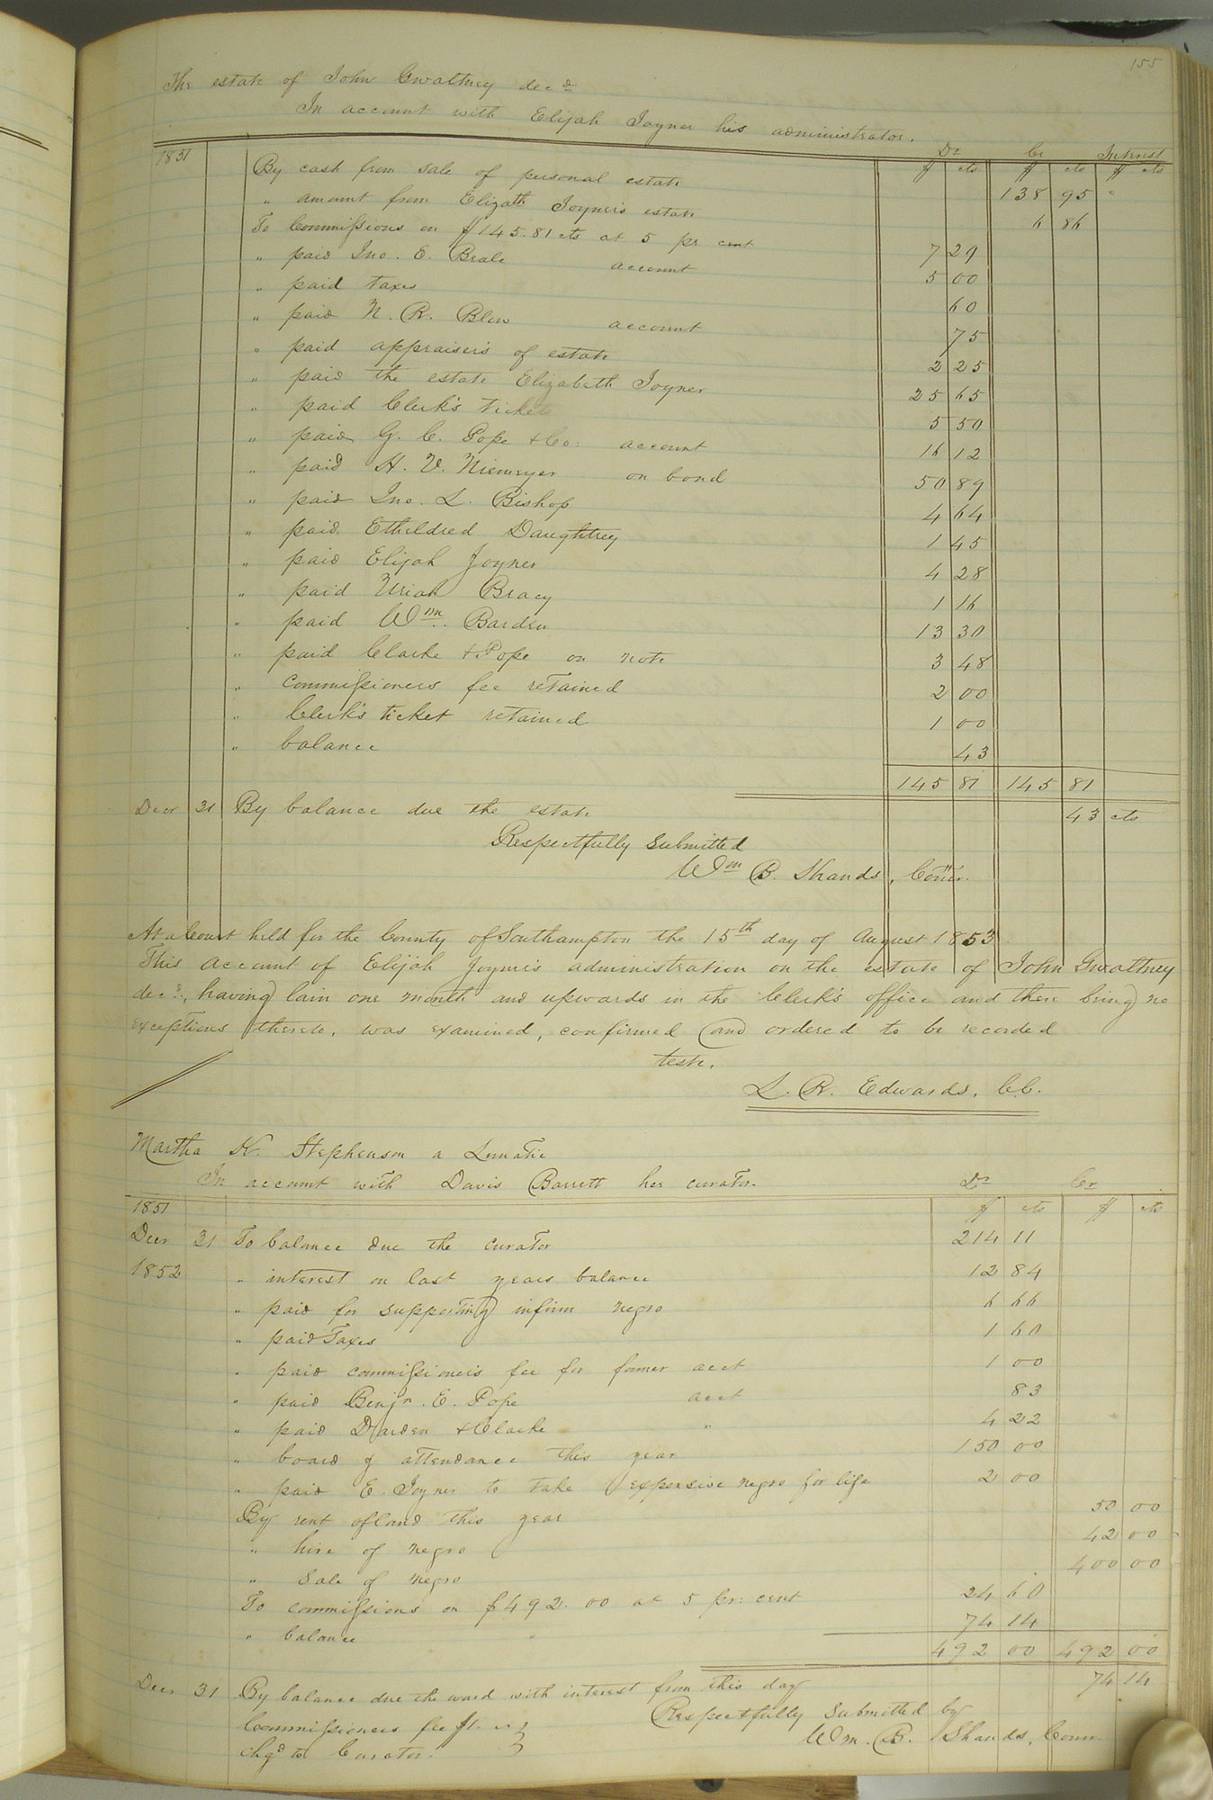 155
The estate of John Gwaltney decd
In account with Elijah Joyner his administrator.
Dr Cr Interest
1851 $ cts $ cts $ cts
By cash from sale of personal estate 138 95
" amount from Elizath Joyner's estate 6 86
To Commissions on $145.81 cts at 5 pr cent 7 29
" paid Jno. E. Beale account 5 00
" paid taxes 60
" paid N. R. Blow account 75
" paid appraisers of estate 2 25
" paid the estate Elizabeth Joyner 25 65
" paid Clerk's ticket 5 50
" paid G. C. Pope & Co: account 16 12
" paid H. V. Niemeyer on bond 50 89
" paid Jno. L. Bishop 4 64
" paid Etheldred Daughtrey 1 45
" paid Elijah Joyner 4 28
" paid Uriah Bracy 1 16
" paid Wm. Barden 13 30
" paid Clarke & Pope on note 3 48
" Commissioners fee retained 2 00
" Clerk's ticket retained 1 00
" balance 43
145 81 145 81
Decr 31 By balance due the estate 43 cts
Respectfully Submitted
Wm B. Shands, Comr.
At a Court held for the County of Southampton the 15th day of August 1853
This account of Elijah Joyner's administration on the estate of John Gwaltney
decd., having lain one month and upwards in the Clerk's office and there being no
exceptions thereto, was examined, confirmed and ordered to be recorded
teste.
L. R. Edwards. C.C.
Martha N. Stephenson a Lunatic
In account with Davis Barrett her curator. Dr Cr
1851 $ cts $ cts
Decr 31 To balance due the curator 214 11
1852 " interest on last years balance 12 84
" paid for supporting infirm negro 6 66
" paid Taxes 1 60
" paid commissioner's fee for former acct 1 00
" paid Benjn. E. Pope acct 83
" paid Darden & Clarke " 4 22
" board & attendance this year 150 00
" paid E. Joyner to take expensive negro for life 2 00
By rent of land this year 50 00
" hire of negro 42 00
" Sale of negro 400 00
To commissions on $492.00 at 5 pr: cent 24 60
" balance " 74 14
492 00 492 00
Decr 31 By balance due the ward with interest from this day 74 14
Respectfully Submitted by
Commissioners fee $1.
Wm. B. Shands, Comr.
chgd to Curator.